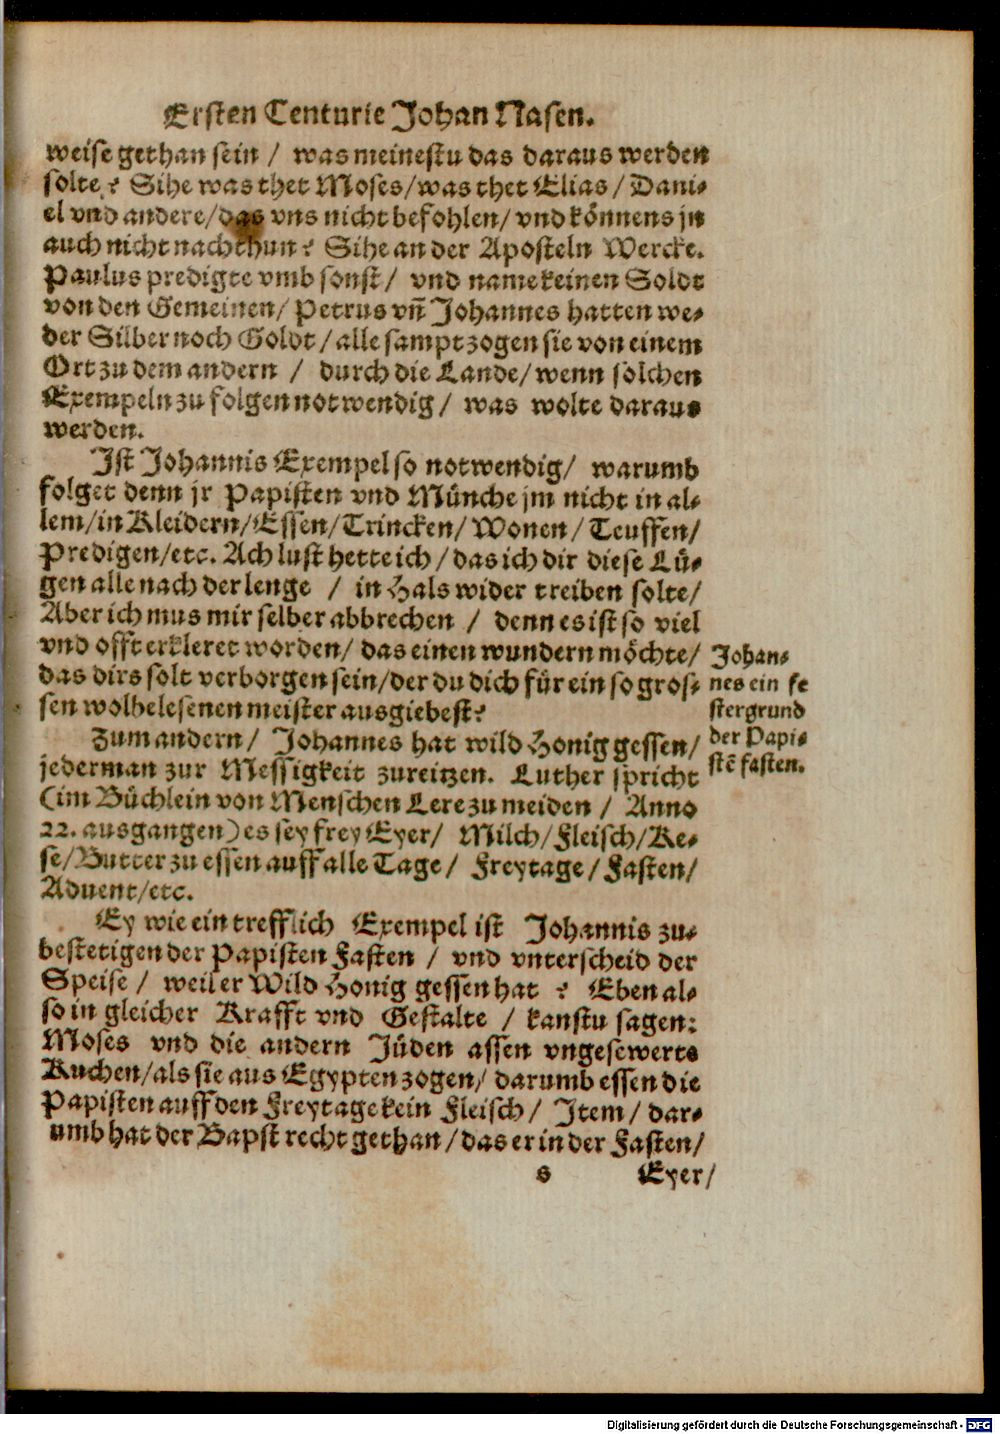 Ersten Centurie Johan Nasen.
weise gethan sein / was meinestu das daraus werden
solte? Sihe was thet Moses/was thet Elias/ Dani-
el vnd andere/das vns nicht befohlen/ vnd könnens jn
auch nicht nachthun? Sihe an der Aposteln Wercke.
Paulus predigte vmb sonst/ vnd name keinen Soldt
von den Gemeinen/ Petrus vñ Johannes hatten we-
der Silber noch Goldt/alle sampt zogen sie von einem
Ort zu dem andern / durch die Lande/wenn solchen
Exempeln zu folgen notwendig/ was wolte daraus
werden.
Ist Johannis Exempel so notwendig/ warumb
folget denn jr Papisten vnd Münche jm nicht in al-
lem/in Kleidern/Essen/Trincken/Wonen/Teuffen/
Predigen/etc. Ach lust hette ich/das ich dir diese Lü-
gen alle nach der lenge / in Hals wider treiben solte/
Aber ich mus mir selber abbrechen / denn es ist so viel
vnd offt erkleret worden/ das einen wundern möchte/
das dirs solt verborgen sein/der du dich für ein so gros-
sen wolbelesenen meister ausgiebest?
Johan-
nes ein fe
stergrund
der Papi-
stẽ fasten.
Zum andern/ Johannes hat wild Honig gessen/
jederman zur Messigkeit zureitzen. Luther spricht
(im Büchlein von Menschen Lere zu meiden / Anno
22. ausgangen) es sey frey Eyer/ Milch/Fleisch/Ke-
se/Butter zu essen auff alle Tage/ Freytage/Fasten/
Aduent/etc.
Ey wie ein trefflich Exempel ist Johannis zu-
bestetigen der Papisten Fasten / vnd vnterscheid der
Speise / weil er Wild Honig gessen hat ? Eben al-
so in gleicher Krafft vnd Gestalte / kanstu sagen:
Moses vnd die andern Jüden assen vngesewerte
Kuchen/als sie aus Egypten zogen/ darumb essen die
Papisten auff den Freytage kein Fleisch/ Item/ dar-
umb hat der Bapst recht gethan/das er in der Fasten/
s Eyer/
Digitalisierung gefördert durch die Deutsche Forschungsgemeinschaft - DFG